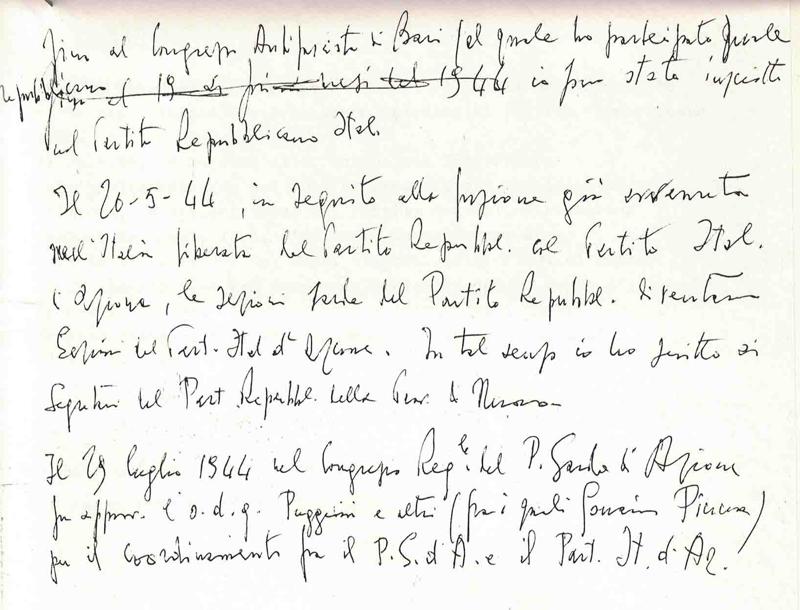 fino al Congresso Antifascista di Bari (al quale ho partecipato quale
repubblicano ~~il 19 ai primi mesi del 1944~~ io son stato iscritto
nel Partito Repubblicano Ital.
Il 20-5-44, in seguito alla fusione già avvenuta
nell'Italia liberata del Partito Repubbl. col Partito Ital.
d'Azione, le sezioni sarde del Partito Repubbl. diventano
Sezioni del Part. Ital d'Azione. In tal senso io ho scritto ai
Segretari del Part. Repubbl. della Prov. di Nuoro
Il 29 luglio 1944 nel Congresso Regle. del P. Sardo di Azione
fu appro. l'o.d.g. Puggioni e altri (fra i quali Pincus)
per il coordinamento fra il P.S.d'A. e il Part. It. d'Az.